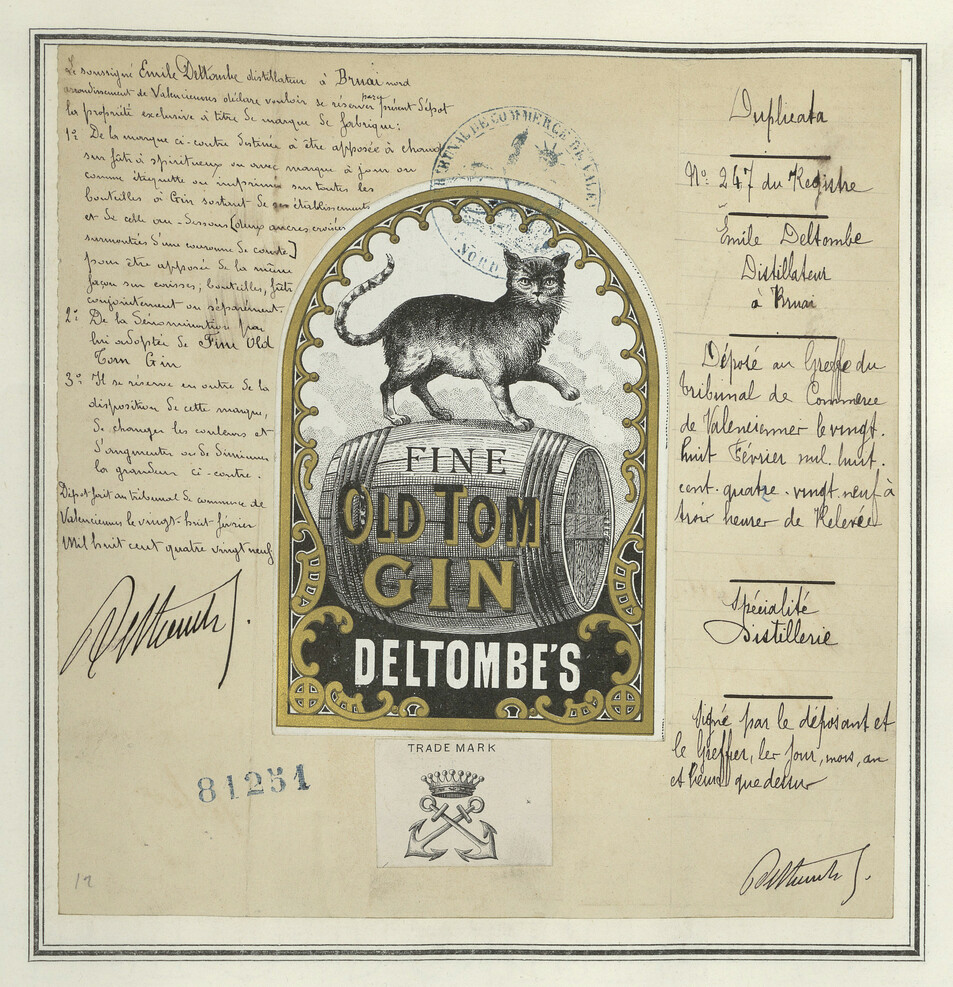 Je soussigné Emile Deltombe distillateur à Bruai nord
arrondissement de Valenciennes déclare vouloir se réserver par ce présent Dépot
la propriété exclusive à titre de marque de fabrique:
1º De la marque ci-contre destinée à être apposée à chaud
sur fûts à spiritueux ou avec marque à jour ou
comme étiquette ou imprimée sur toutes les
bouteilles à Gin sortant de ses établissements
et de celle au-dessous (deux ancres croisées
surmontées d'une couronne de comte)
pour être apposée de la même
façon sur caisses, bouteilles, fûts
conjointement ou séparément.
2º De la dénomination par
lui adoptée de Fine Old
Tom Gin
3º Il se réserve en outre de la
disposition de cette marque,
de changer les couleurs et
d'augmenter ou de diminuer
la grandeur ci-contre.
Dépot fait au tribunal de commerce de
Valenciennes le vingt-huit février
Mil huit cent quatre vingt neuf
Deltombe
TRIBUNAL DE COMMERCE DE VALEN
NORD
FINE
OLD TOM
GIN
DELTOMBE'S
TRADE MARK
81251
12
Duplicata
Nº 247 du Registre
Émile Deltombe
Distillateur
à Bruai
Déposé au Greffe du
tribunal de Commerce
de Valenciennes le vingt.
huit Février mil huit.
cent. quatre. vingt. neuf à
trois heures de Relevée
Spécialité
Distillerie
Signé par le déposant et
le Greffier, les jour, mois, an
et heure que dessus
Deltombe